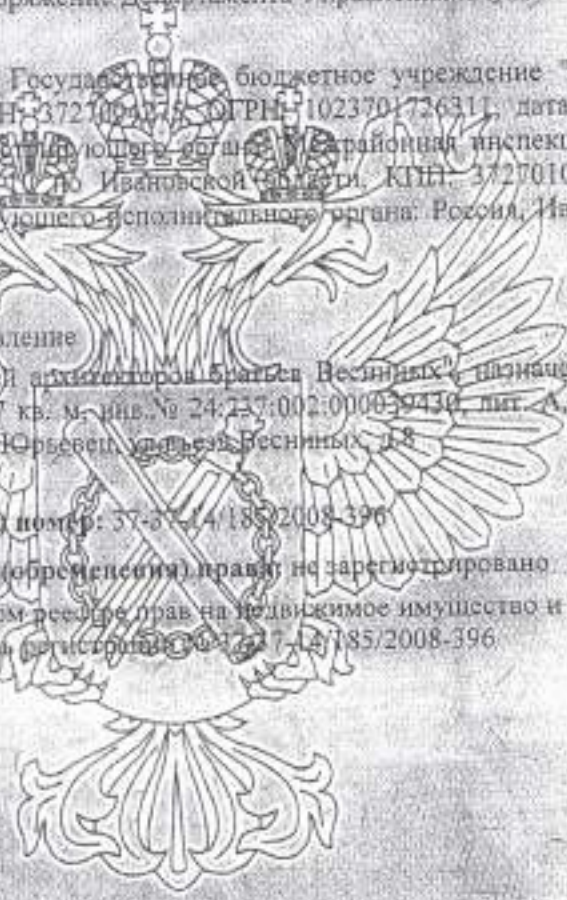 Государственное бюджетное учреждение "
ОГРН: 1023701726311, дата
органа: Межрайонная инспекц
по Ивановской области, КПП: 3727010
ующего исполнительного органа: Россия, Ив
вление
й архитекторов братьев Весниных", назначе
7 кв. м, инв.№ 24:237:002:000039430, лит. А,
Юрьевец, ул. Весниных, д.8
номер: 37-37-14/185/2008-396
(обременения) права: не зарегистрировано
ом реестре прав на недвижимое имущество и
регистрации № 37-37-14/185/2008-396